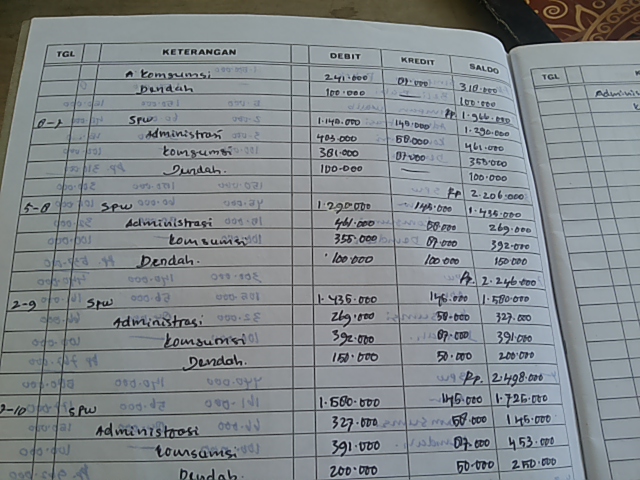 TGL KETERANGAN DEBIT KREDIT SALDO
Komsumsi 241.000 87.000 318.000
Dendah 100.000 — 100.000
Rp 1.966.000
8-7 SPW 1.140.000 145.000 1.290.000
Administrasi 403.000 58.000 461.000
Komsumsi 381.000 87.000 355.000
Dendah. 100.000 — 100.000
Rp 2.206.000
5-8 SPW 1.290.000 145.000 1.435.000
Administrasi 461.000 58.000 269.000
Komsumsi 355.000 87.000 392.000
Dendah. 100.000 100.000 150.000
Rp. 2.246.000
2-9 SPW 1.435.000 145.000 1.580.000
Administrasi 269.000 58.000 327.000
Komsumsi 392.000 87.000 391.000
Dendah 150.000 50.000 200.000
Rp. 2.498.000
-10 SPW 1.580.000 145.000 1.725.000
Administrasi 327.000 58.000 145.000
Komsumsi 391.000 87.000 453.000
Dendah. 200.000 50.000 250.000
TGL